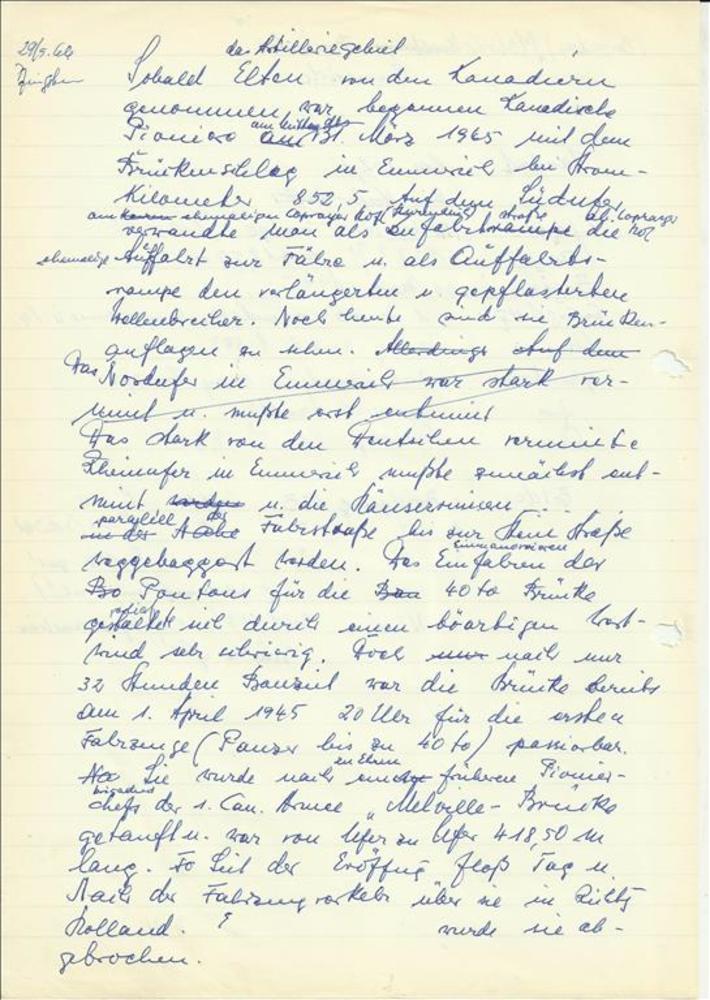 29/5.
das Artilleriegebiet
Sobald Elten von den Kanadiern
genommen war, begannen Kanadische
Pioniere am 31. März 1945 mit dem
Brückenschlag in Emmerich bei Strom-
Kilometer 852,5. Auf dem Südufer
am ehemaligen Hof straße
verwandte man als Zufahrtsrampe die
ehemalige Auffahrt zur Fähre u. als Auffahrts-
rampe den verlängerten u. gepflasterten
Wellenbrecher. Noch heute sind die Brücken-
auflagen zu sehen. Allerdings Auf dem
Das Nordufer in Emmerich war stark ver-
mint u. mußte erst entmint
Das stark von den Deutschen verminte
Rheinufer in Emmerich mußte zunächst ent-
mint werden u. die Häuserruinen . . .
parallel der
in der Nähe Fährstraße bis zur Steinstraße
weggebaggert werden. Das Einfahren der
Einmanövrieren
Bo Pontons für die Bau 40 to Brücke
gestaltete sich durch einen böartigen West-
wind sehr schwierig. Doch nur nach nur
32 Stunden Bauzeit war die Brücke bereits
am 1. April 1945 20 Uhr für die ersten
Fahrzeuge (Panzer bis zu 40 to) passierbar.
zu Ehren
Sie wurde nach früheren Pionier-
chefs der 1. Can. Armee „Melville-Brücke
getauft u. war von Ufer zu Ufer 418,50 m
lang. Seit der Eröffng floß Tag u.
Nacht der Fahrzeugverkehr über sie in Richtg
Holland. ? wurde sie ab-
gebrochen.